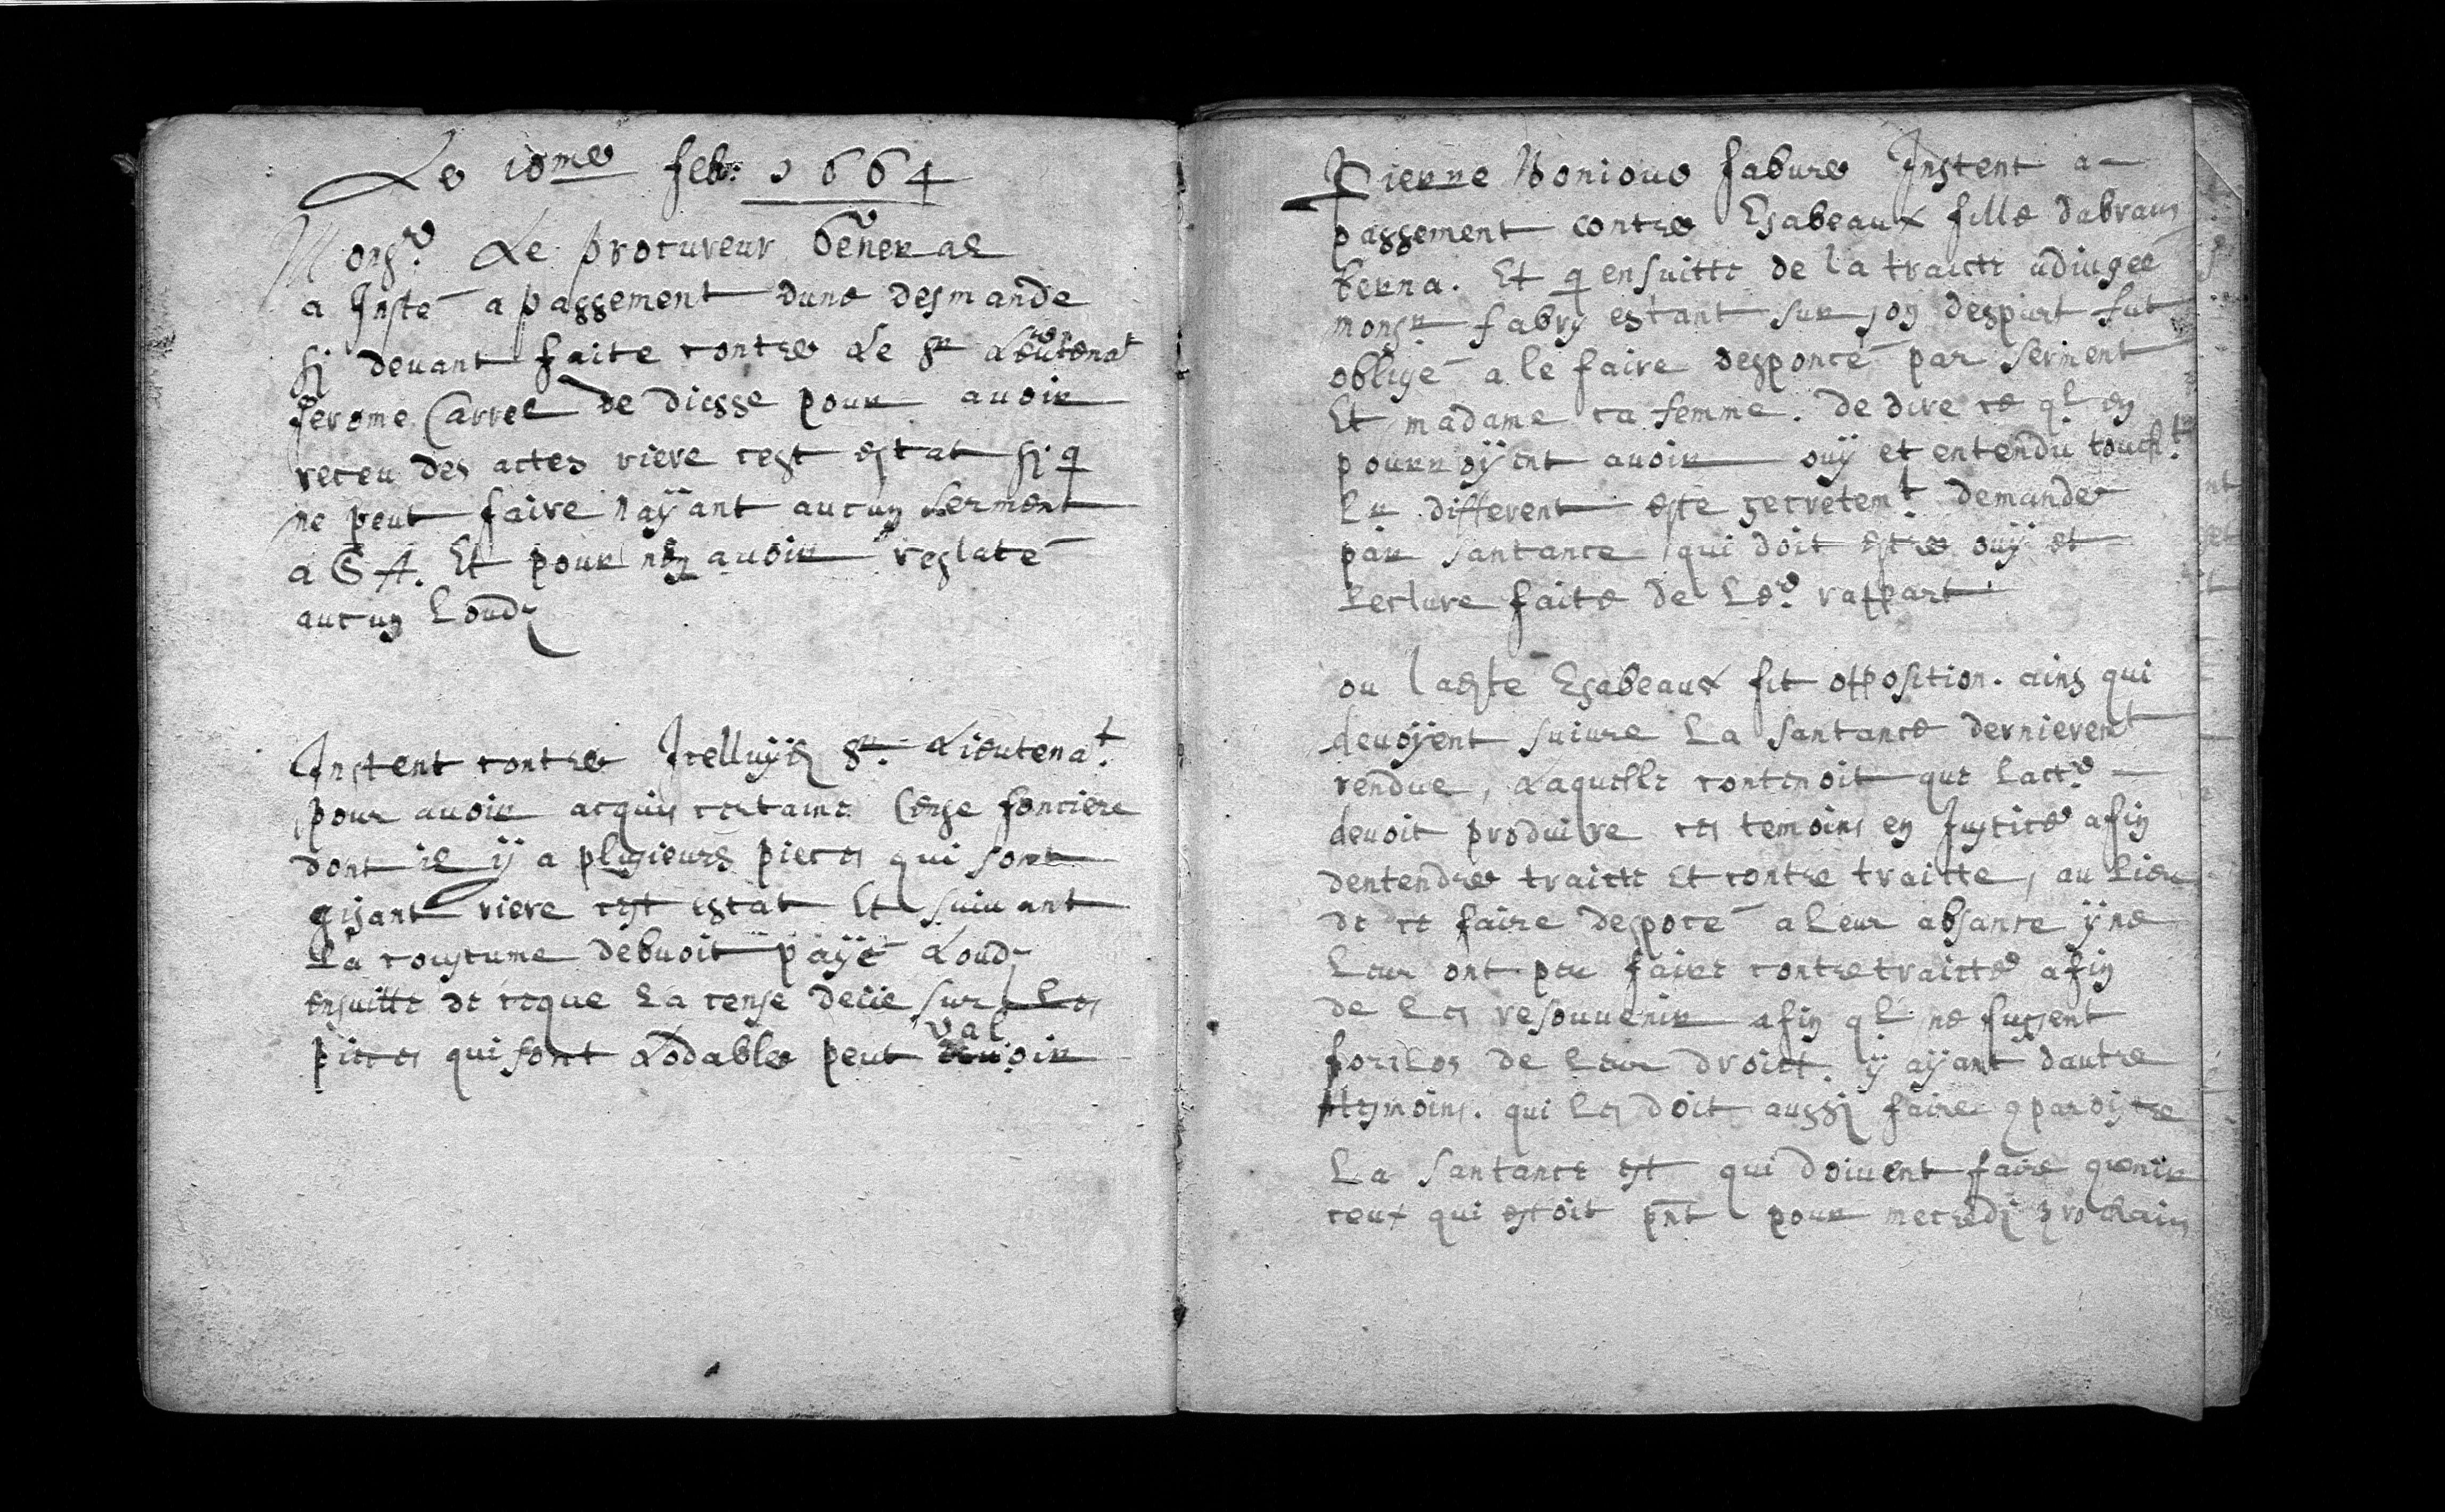 Le 10me feb: 1664
Monsr Le procureur General
a Insté a passement dune desmande
sy deuant faite contre Le Sr Leutenat
Jerome Carrel de diesse pour auoir
receu des actes riere cest estat sy q
ne peut faire nayant aucun serment
a S A. Et pour nen auoir reslaté
aucun Loudz
Instent contre Icelluyd Sr. Lieutenat.
pour auoir acquis certaine Cense fonciere
dont il y a plusieurs pieces qui sont
gisant riere cest estat Et suiuant
La coustume debuoit payé Loudz
ensuitte de ceque La cense deüe sur Les
pieces qui sont Lodable peut valoir
Pierre Fabure Instent a
passement contre Esabeaux fille dabram
berna. Et q ensuitte de la traicte adiugee
monsr fabry estant sur son despart fut
obligé a le faire desponcé par serment
Et madame ca femme. de dire ce ql en
pourroyent auoir ouy et entendu toucht.
Lr different este secretemt. demande
par santance qui doit estre ouy et
Lecture faite de Le. rappart
ou ladte Esabeaux fit opposition. ains qui
deuoyent suiure La santance dernieremt
rendue, Laquelle contenoit que Lacte.
deuoit produire ces temoins en Justice afin
dentendre traicte Et contre traitte, au Lieu
de ce faire despocé a Leur absance y ne
Leur ont peu faire contretraicte afin
de Les resouuenir afin ql ne fussent
forclos de Leur droict. y ayant dautre
tesmoins. qui Les doit aussy faire gparoistre
La santance est qui doiuent faire guenir
ceux qui estoit pnt pour mecredy prochain